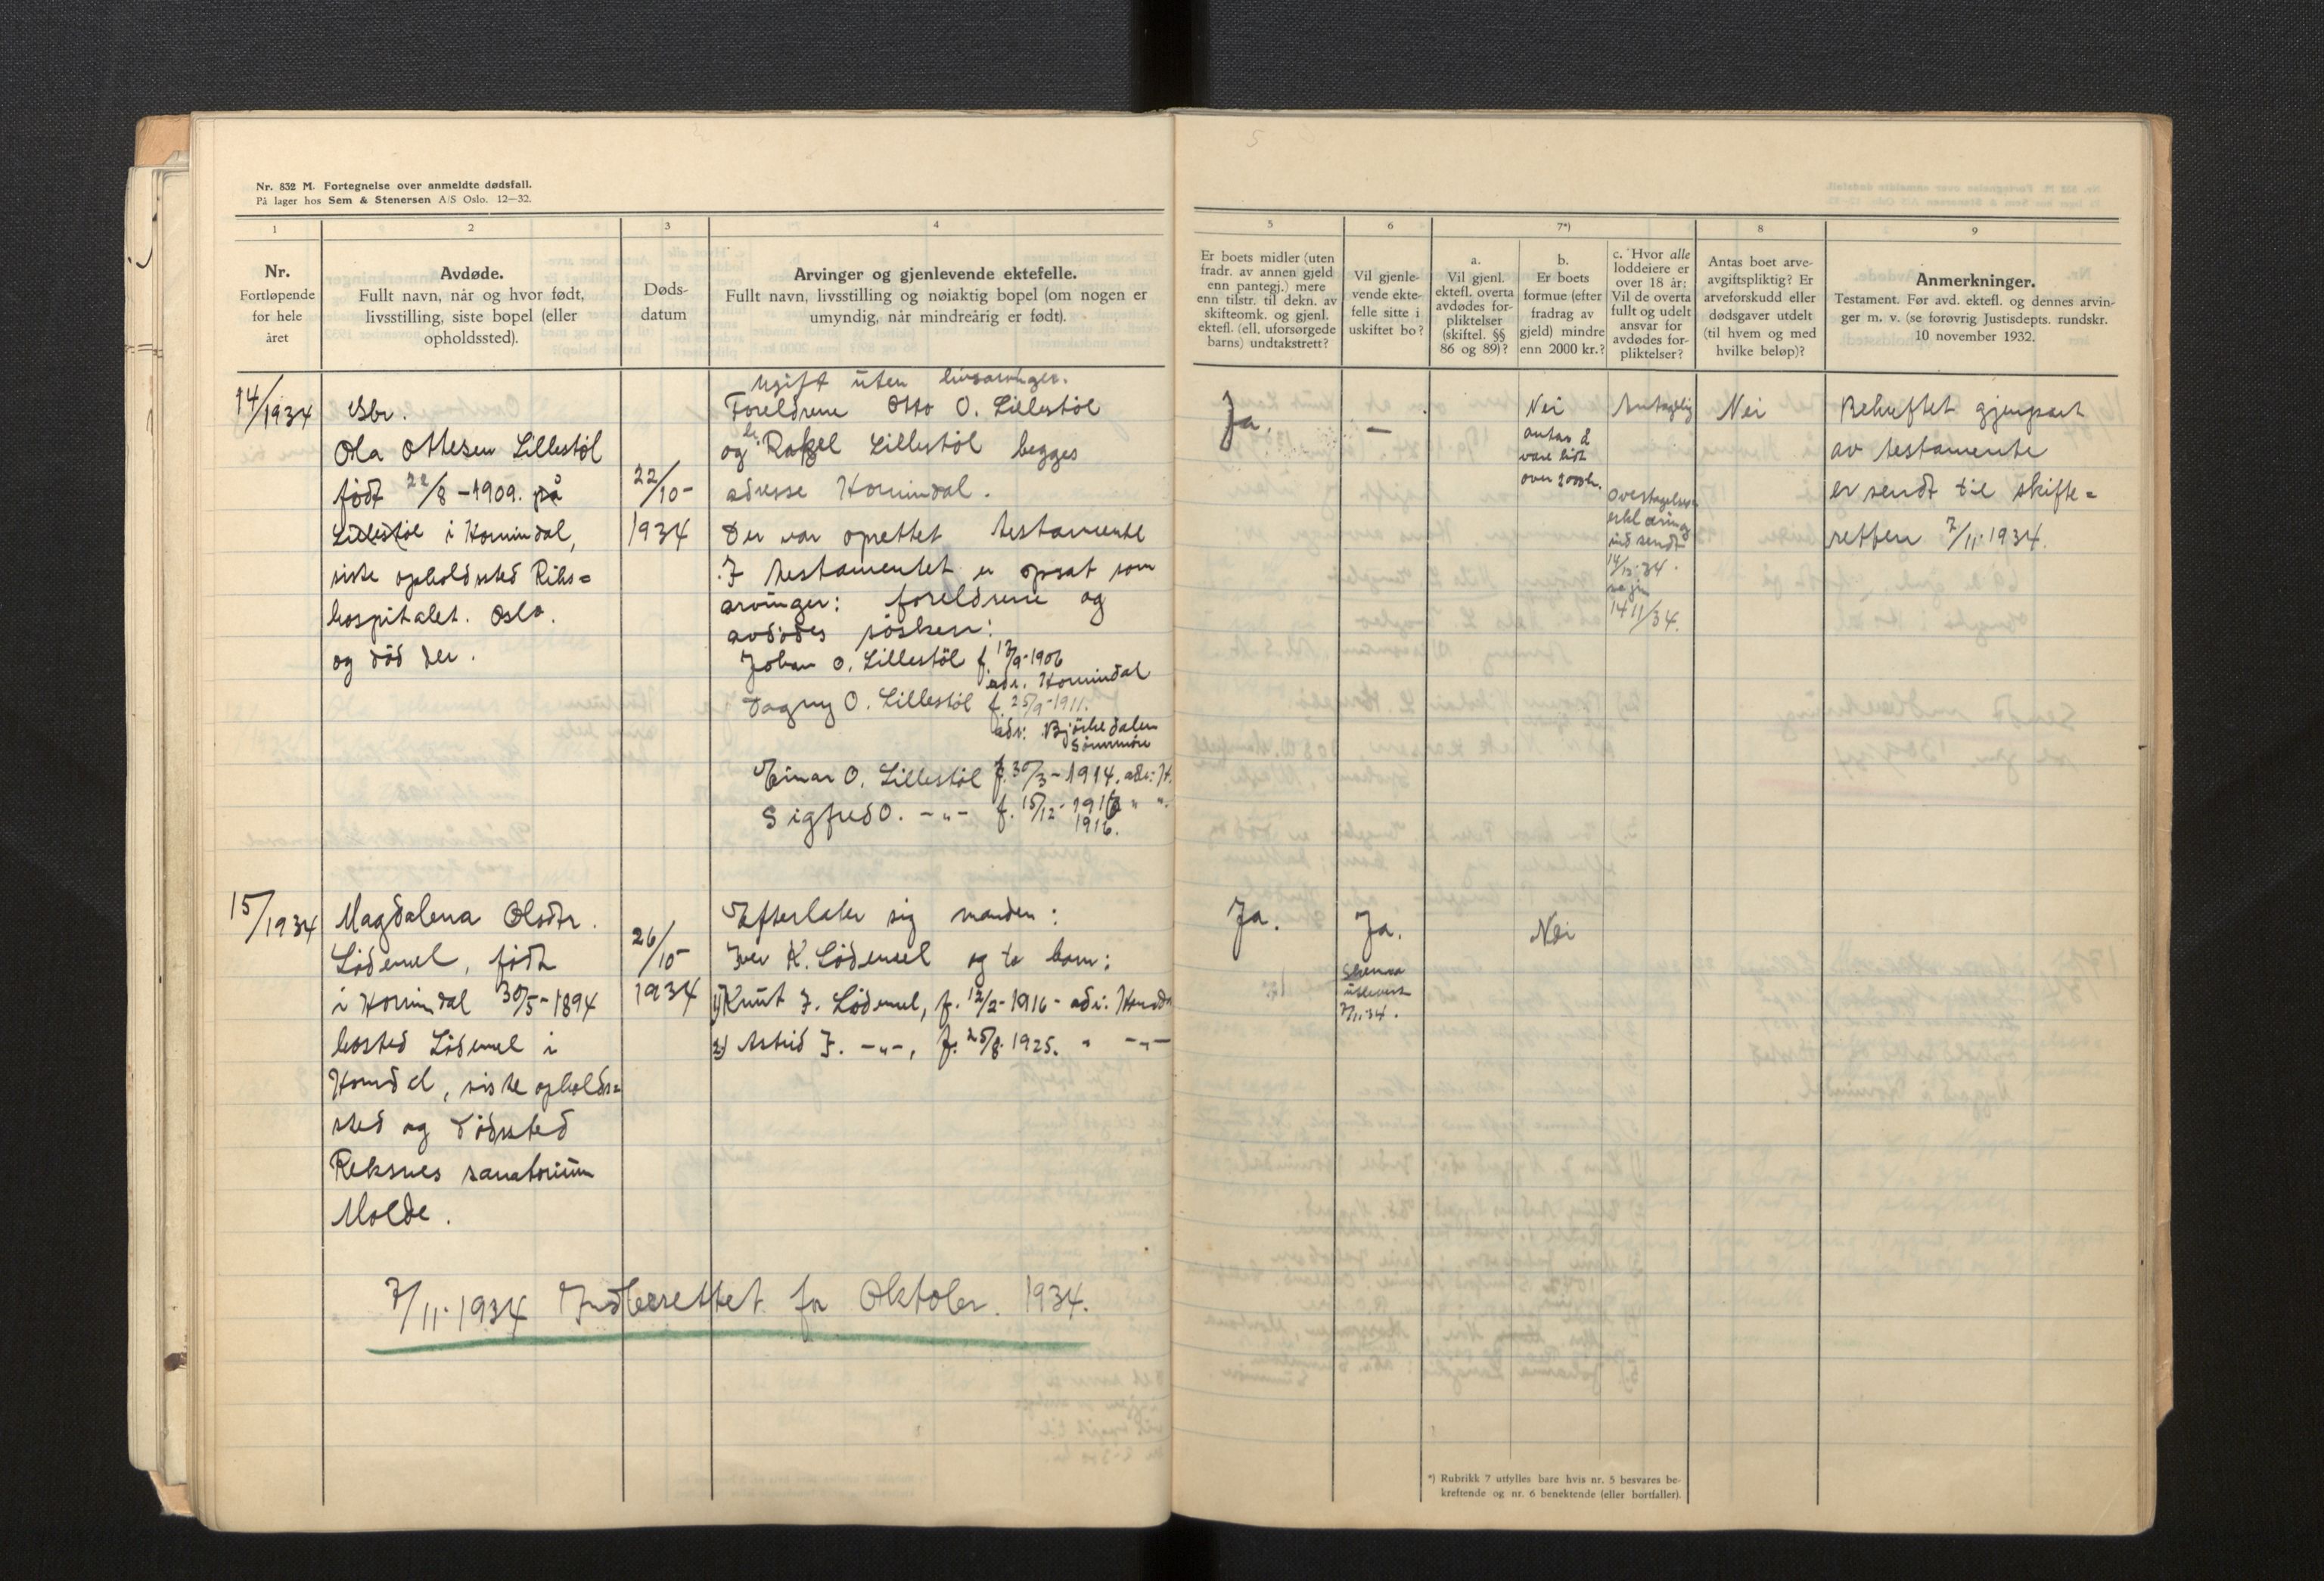 Nr. 832 M. Fortegnelse over anmeldte dødsfall.
På lager hos Sem & Stenersen A/S Oslo. 12—32.
1
2
3
4
Nr.
Fortløpende
for hele
året
Avdøde.
Fullt navn, når og hvor født,
livsstilling, siste bopel (eller
opholdssted).
Døds-
datum
Arvinger og gjenlevende ektefelle.
Fullt navn, livsstilling og nøiaktig bopel (om nogen er
umyndig, når mindreårig er født).
14/1934
Gbr.
Ola Ottesen Lillestöl
født 22/8 - 1909. på
Lillestöl i Hornindal,
siste opholdssted Riks=
hospitalet. Oslo.
og död der.
22/10-
1934
Ugift uten livsarvinger.
Foreldrene Otto O. Lillestöl
og Rakel Lillestöl begges
adresse Hornindal.
Der var oprettet testamente
I testamentet er opsat som
arvinger: foreldrene og
avdödes sösken:
Johan O. Lillestöl f. 17/9-1906
adr. Hornindal
Dagny O. Lillestöl f. 25/9-1911.
adr: Björkedalen
Sönnmöre
Einar O. Lillestöl f. 30/3-1914. adr: H.
Sigfred O. -"- f. 15/12-1916 " ".
1916.
15/1934
Magdalena Olsdtr.
Lödemel, födt
i Hornindal 30/5-1894
bosted Lödemel i
Horndal, siste opholds=
sted og dödssted
Reksnes sanatorium
Molde.
26/10-
1934
Efterlater sig manden:
Iver K. Lödemel og to barn:
1) Knut I. Lödemel, f. 12/2-1916- adr: Horndal
2) Astrid I. -"-, f. 25/8.1925. " -"-
7/11.1934 Indberettet for Oktober. 1934.
5
6
7*)
8
9
Er boets midler (uten
fradr. av annen gjeld
enn pantegj.) mere
enn tilstr. til dekn. av
skifteomk. og gjenl.
ektefl. (ell. uforsørgede
barns) undtakstrett?
Vil gjenle-
vende ekte-
felle sitte i
uskiftet bo?
a.
Vil gjenl.
ektefl. overta
avdødes for-
pliktelser
(skiftel. §§
86 og 89)?
b.
Er boets
formue (efter
fradrag av
gjeld) mindre
enn 2000 kr.?
c. Hvor alle
loddeiere er
over 18 år:
Vil de overta
fullt og udelt
ansvar for
avdødes for-
pliktelser?
Antas boet arve-
avgiftspliktig? Er
arveforskudd eller
dødsgaver utdelt
(til hvem og med
hvilke beløp)?
Anmerkninger.
Testament. Før avd. ektefl. og dennes arvin-
ger m. v. (se forøvrig Justisdepts. rundskr.
10 november 1932.
Ja.
—
Nei
antas å
være litt
over 2000 kr.
Antagelig
Overtagelses
erklæring
indsendt
14/11.34.
14 11/34.
Nei
Bekreftet gjenpart
av testamente
er sendt til skifte=
retten 7/11.1934.
Ja.
Ja.
Skjema
utlevert
7/11.34.
Nei
*) Rubrikk 7 utfylles bare hvis nr. 5 besvares be-
kreftende og nr. 6 benektende (eller bortfaller).